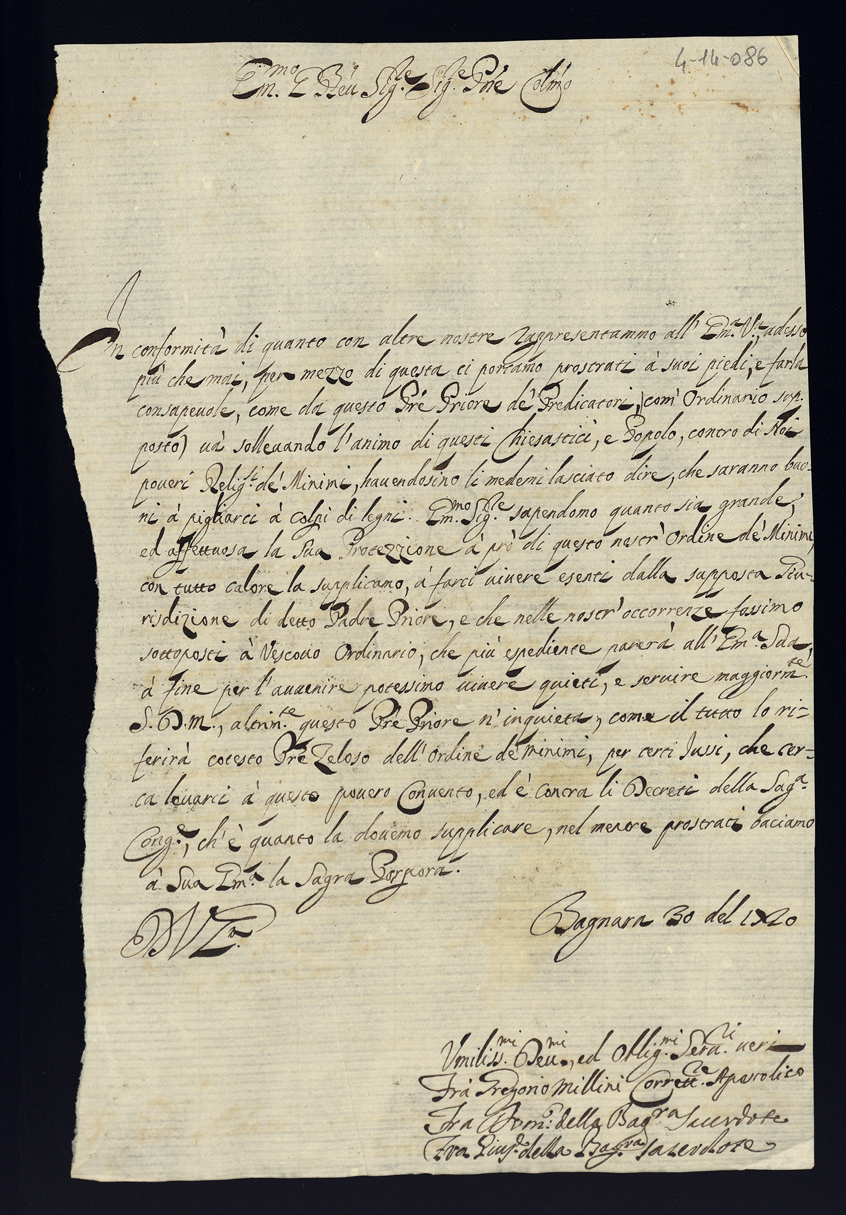 4-14-086
Em.mo E Rẽu Sig.re Sig.re Prẽ Colmõ
In conformità di quanto con altre nostre rappresentammo all' Em.a V.ra, adesso
più che mai, per mezzo di questa ci portamo prostrati à suoi piedi, e farla
consapeuole, come da questo Prẽ Priore de' Predicatori, (com' Ordinario sup-
posto) uà solleuando l'animo di questi Chiesastici, e Popolo, contro di Noi
poueri Relig.si de' Minimi, hauendosino li medemi lasciato dire, che saranno buo-
ni à pigliarci à colpi di legni. Em.mo Sig.re sapendomo quanto sia grande,
ed affettuosa la Sua Protezzione à prò di questo nostr' Ordine de' Minimi,
con tutto calore la supplicamo, à farci uiuere esenti dalla supposta Giu-
risdizione di detto Padre Priore, e che nelle nostr' occorrenze fossimo
sottoposti à Vescouo Ordinario, che più espediente parerà all' Em.a Sua,
à fine per l'auuenire potessimo uiuere quieti, e seruire maggiorm.te
S. D. M., altrim.te questo Prẽ Priore n' inquieta, come il tutto lo ri-
ferirà cotesto Prẽ Zeloso dell' Ordine de' minimi, per certi Jussi, che cer-
ca leuarci à questo pouero Conuento, ed è contra li Decreti della Sag.a
Cong.e, ch' è quanto la douemo supplicare, nel mentre prostrati baciamo
à Sua Em.a la Sagra Porpora.
Bagnara 30 del 1720
D V Em.a
Vmiliss.mi Deu.mi, ed Oblig.mi Seru.ri ueri
Frà Gregorio Millini Corrett.re Apostolico
Fra Dom.co della Bag.ra Sacerdote
Fra Gius.e della Bag.ra sacerdote